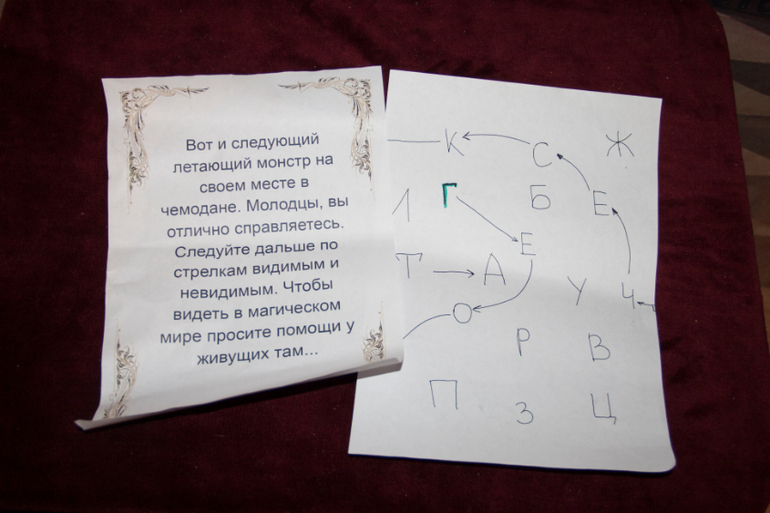 Вот и следующий
летающий монстр на
своем месте в
чемодане. Молодцы, вы
отлично справляетесь.
Следуйте дальше по
стрелкам видимым и
невидимым. Чтобы
видеть в магическом
мире просите помощи у
живущих там...
К С Ж
Л Г Б Е
Т А Е У Ч
О Р В
П З Ц